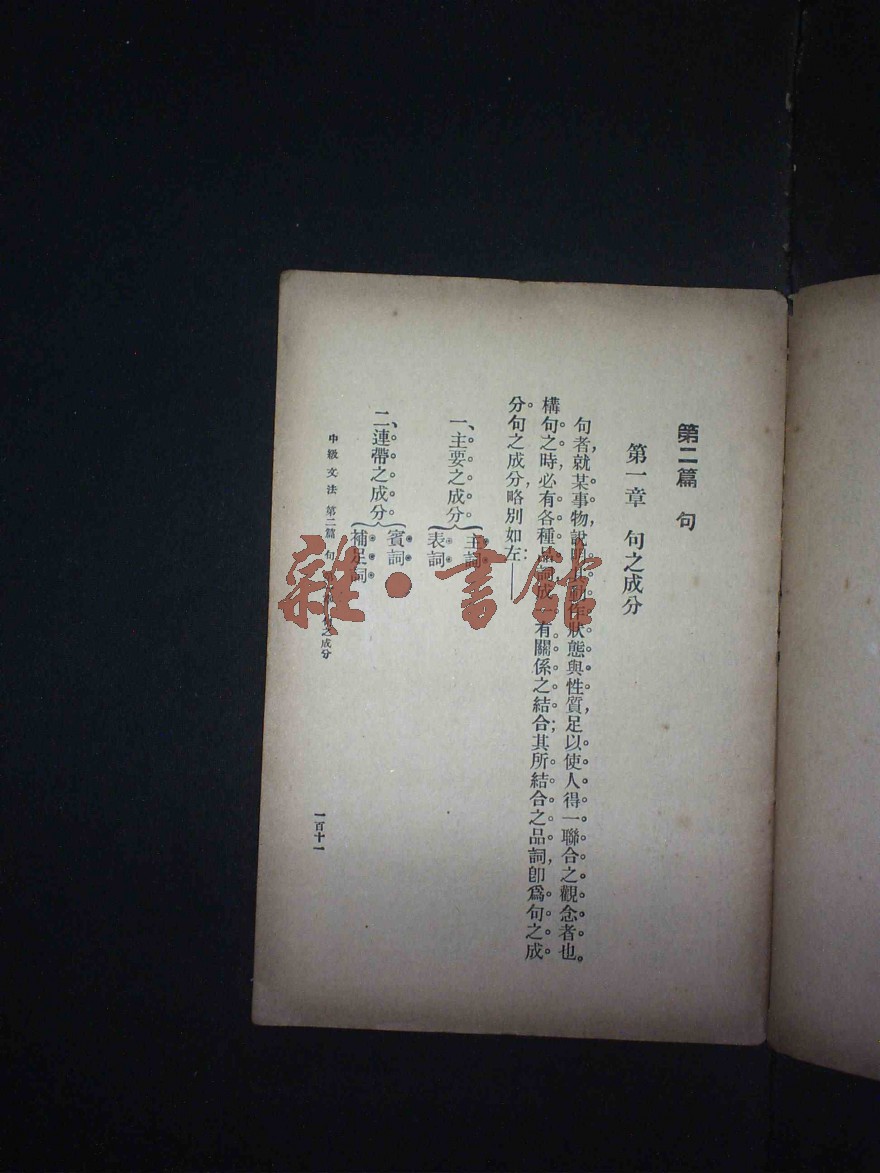 第二篇　句
第一章　句之成分
句者，就某事物，說明其動作狀態與性質，足以使人得一聯合之觀念者也。
構句之時，必有各種品詞成一有關係之結合；其所結合之品詞，卽爲句之成
分。句之成分，略別如左：——
一、主要之成分
主詞
表詞
二、連帶之成分
賓詞
補足詞
中級文法　第二篇　句　句之成分
一百十一
雜·書館